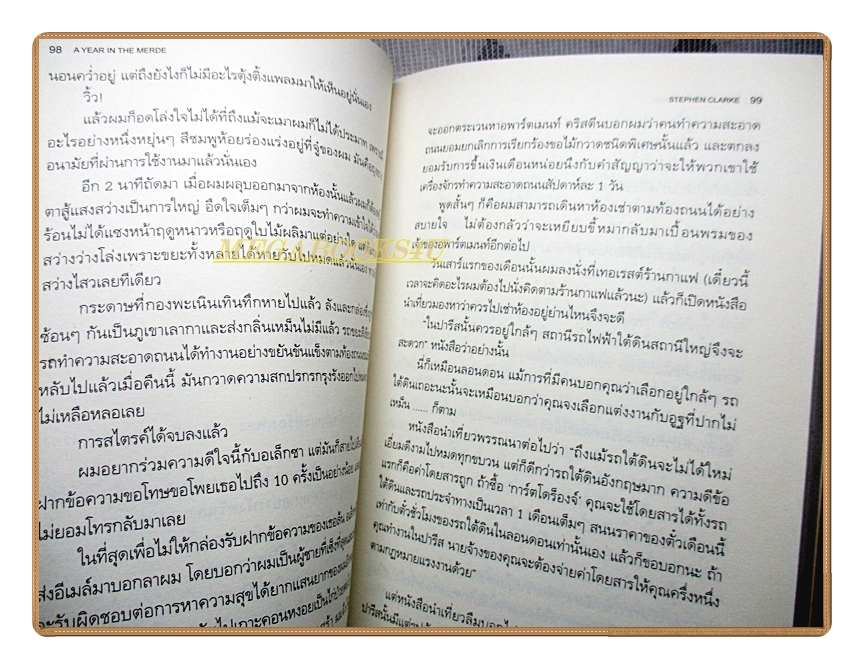 98 A YEAR IN THE MERDE
นอนคว่ำอยู่ แต่ถึงยังไงก็ไม่มีอะไรตุ้งติ้งแพลมมาให้เห็นอยู่นั่นเอง
วิ้ว!
แล้วผมก็อดโล่งใจไม่ได้ที่ถึงแม้จะเมาผมก็ไม่ได้ประมาท เพราะมี
อะไรอย่างหนึ่งหยุ่นๆ สีชมพูห้อยร่องแร่งอยู่ที่จู๋ของผม มันคือถุงยาง
อนามัยที่ผ่านการใช้งานมาแล้วนั่นเอง
อีก 2 นาทีถัดมา เมื่อผมผลุบออกมาจากห้องนั้นแล้วผมก็ต้อง
ตาสู้แสงสว่างเป็นการใหญ่ อึดใจเต็มๆ กว่าผมจะทำความเข้าใจได้ว่า
ร้อนไม่ได้แซงหน้าฤดูหนาวหรือฤดูใบไม้ผลิมาแต่อย่างใด
สว่างว่างโล่งเพราะขยะทั้งหลายได้หายวับไปหมดแล้วนั่นเอง
สว่างไสวเลยทีเดียว
กระดาษที่กองพะเนินเทินทึกหายไปแล้ว ลังและกล่อง
ซ้อนๆ กันเป็นภูเขาเลากาและส่งกลิ่นเหม็นไม่มีแล้ว รถขยะสีเขียว
รถทำความสะอาดถนนได้ทำงานอย่างขยันขันแข็งตามท้องถนน
หลับไปแล้วเมื่อคืนนี้ มันกวาดความสกปรกรกรุงรังออกไป
ไม่เหลือหลอเลย
การสไตรค์ได้จบลงแล้ว
ผมอยากร่วมความดีใจนี้กับอเล็กซา แต่มันก็สาย
ฝากข้อความขอโทษขอโพยเธอไปถึง 10 ครั้งเป็นอย่างน้อย
ไม่ยอมโทรกลับมาเลย
ในที่สุดเพื่อไม่ให้กล่องรับฝากข้อความของเธอล้น
ส่งอีเมล์มาบอกลาผม โดยบอกว่าผมเป็นผู้ชายที่
จะรับผิดชอบต่อการหาความสุขได้ยากแสนยากของ
ไปเกาะคอนหงอยเป็นไก่ป่วย
STEPHEN CLARKE 99
จะออกตระเวนหาอพาร์ตเมนท์ คริสตีนบอกผมว่าคนทำความสะอาด
ถนนยอมยกเลิกการเรียกร้องขอไม้กวาดชนิดพิเศษนั้นแล้ว และตกลง
ยอมรับการขึ้นเงินเดือนหน่อยนึงกับคำสัญญาว่าจะให้พวกเขาใช้
เครื่องจักรทำความสะอาดถนนสัปดาห์ละ 1 วัน
พูดสั้นๆ ก็คือผมสามารถเดินหาห้องเช่าตามท้องถนนได้อย่าง
สบายใจ ไม่ต้องกลัวว่าจะเหยียบขี้หมากลับมาเปื้อนพรมของ
เจ้าของอพาร์ตเมนท์อีกต่อไป
MEGABOOKS4U
วันเสาร์แรกของเดือนนั้นผมลงนั่งที่เทอเรสต์ร้านกาแฟ (เดี๋ยวนี้
เวลาจะคิดอะไรผมต้องไปนั่งคิดตามร้านกาแฟแล้วนะ) แล้วก็เปิดหนังสือ
นำเที่ยวมองหาว่าควรไปเช่าห้องอยู่ย่านไหนจึงจะดี
“ในปารีสนั้นควรอยู่ใกล้ๆ สถานีรถไฟฟ้าใต้ดินสถานีใหญ่จึงจะ
สะดวก” หนังสือว่าอย่างนั้น
นี่ก็เหมือนลอนดอน แม้การที่มีคนบอกคุณว่าเลือกอยู่ใกล้ๆ รถ
ใต้ดินเถอะนะนั้นจะเหมือนบอกว่าคุณจงเลือกแต่งงานกับอูฐที่ปากไม่
เหม็น ...... ก็ตาม
หนังสือนำเที่ยวพรรณนาต่อไปว่า “ถึงแม้รถใต้ดินจะไม่ได้ใหม่
เอี่ยมดีงามไปหมดทุกขบวน แต่ก็ดีกว่ารถใต้ดินอังกฤษมาก ความดีข้อ
แรกก็คือค่าโดยสารถูก ถ้าซื้อ ‘การ์ตโดร็องจ์’ คุณจะใช้โดยสารได้ทั้งรถ
ใต้ดินและรถประจำทางเป็นเวลา 1 เดือนเต็มๆ สนนราคาของตั๋วเดือนนี้
เท่ากับตั๋วชั่วโมงของรถใต้ดินในลอนดอนเท่านั้นเอง แล้วก็ขอบอกนะ ถ้า
คุณทำงานในปารีส นายจ้างของคุณจะต้องจ่ายค่าโดยสารให้คุณครึ่งหนึ่ง
ตามกฎหมายแรงงานด้วย”
แต่หนังสือนำเที่ยวลืมบอก
ปารีสนั้นมีแต่